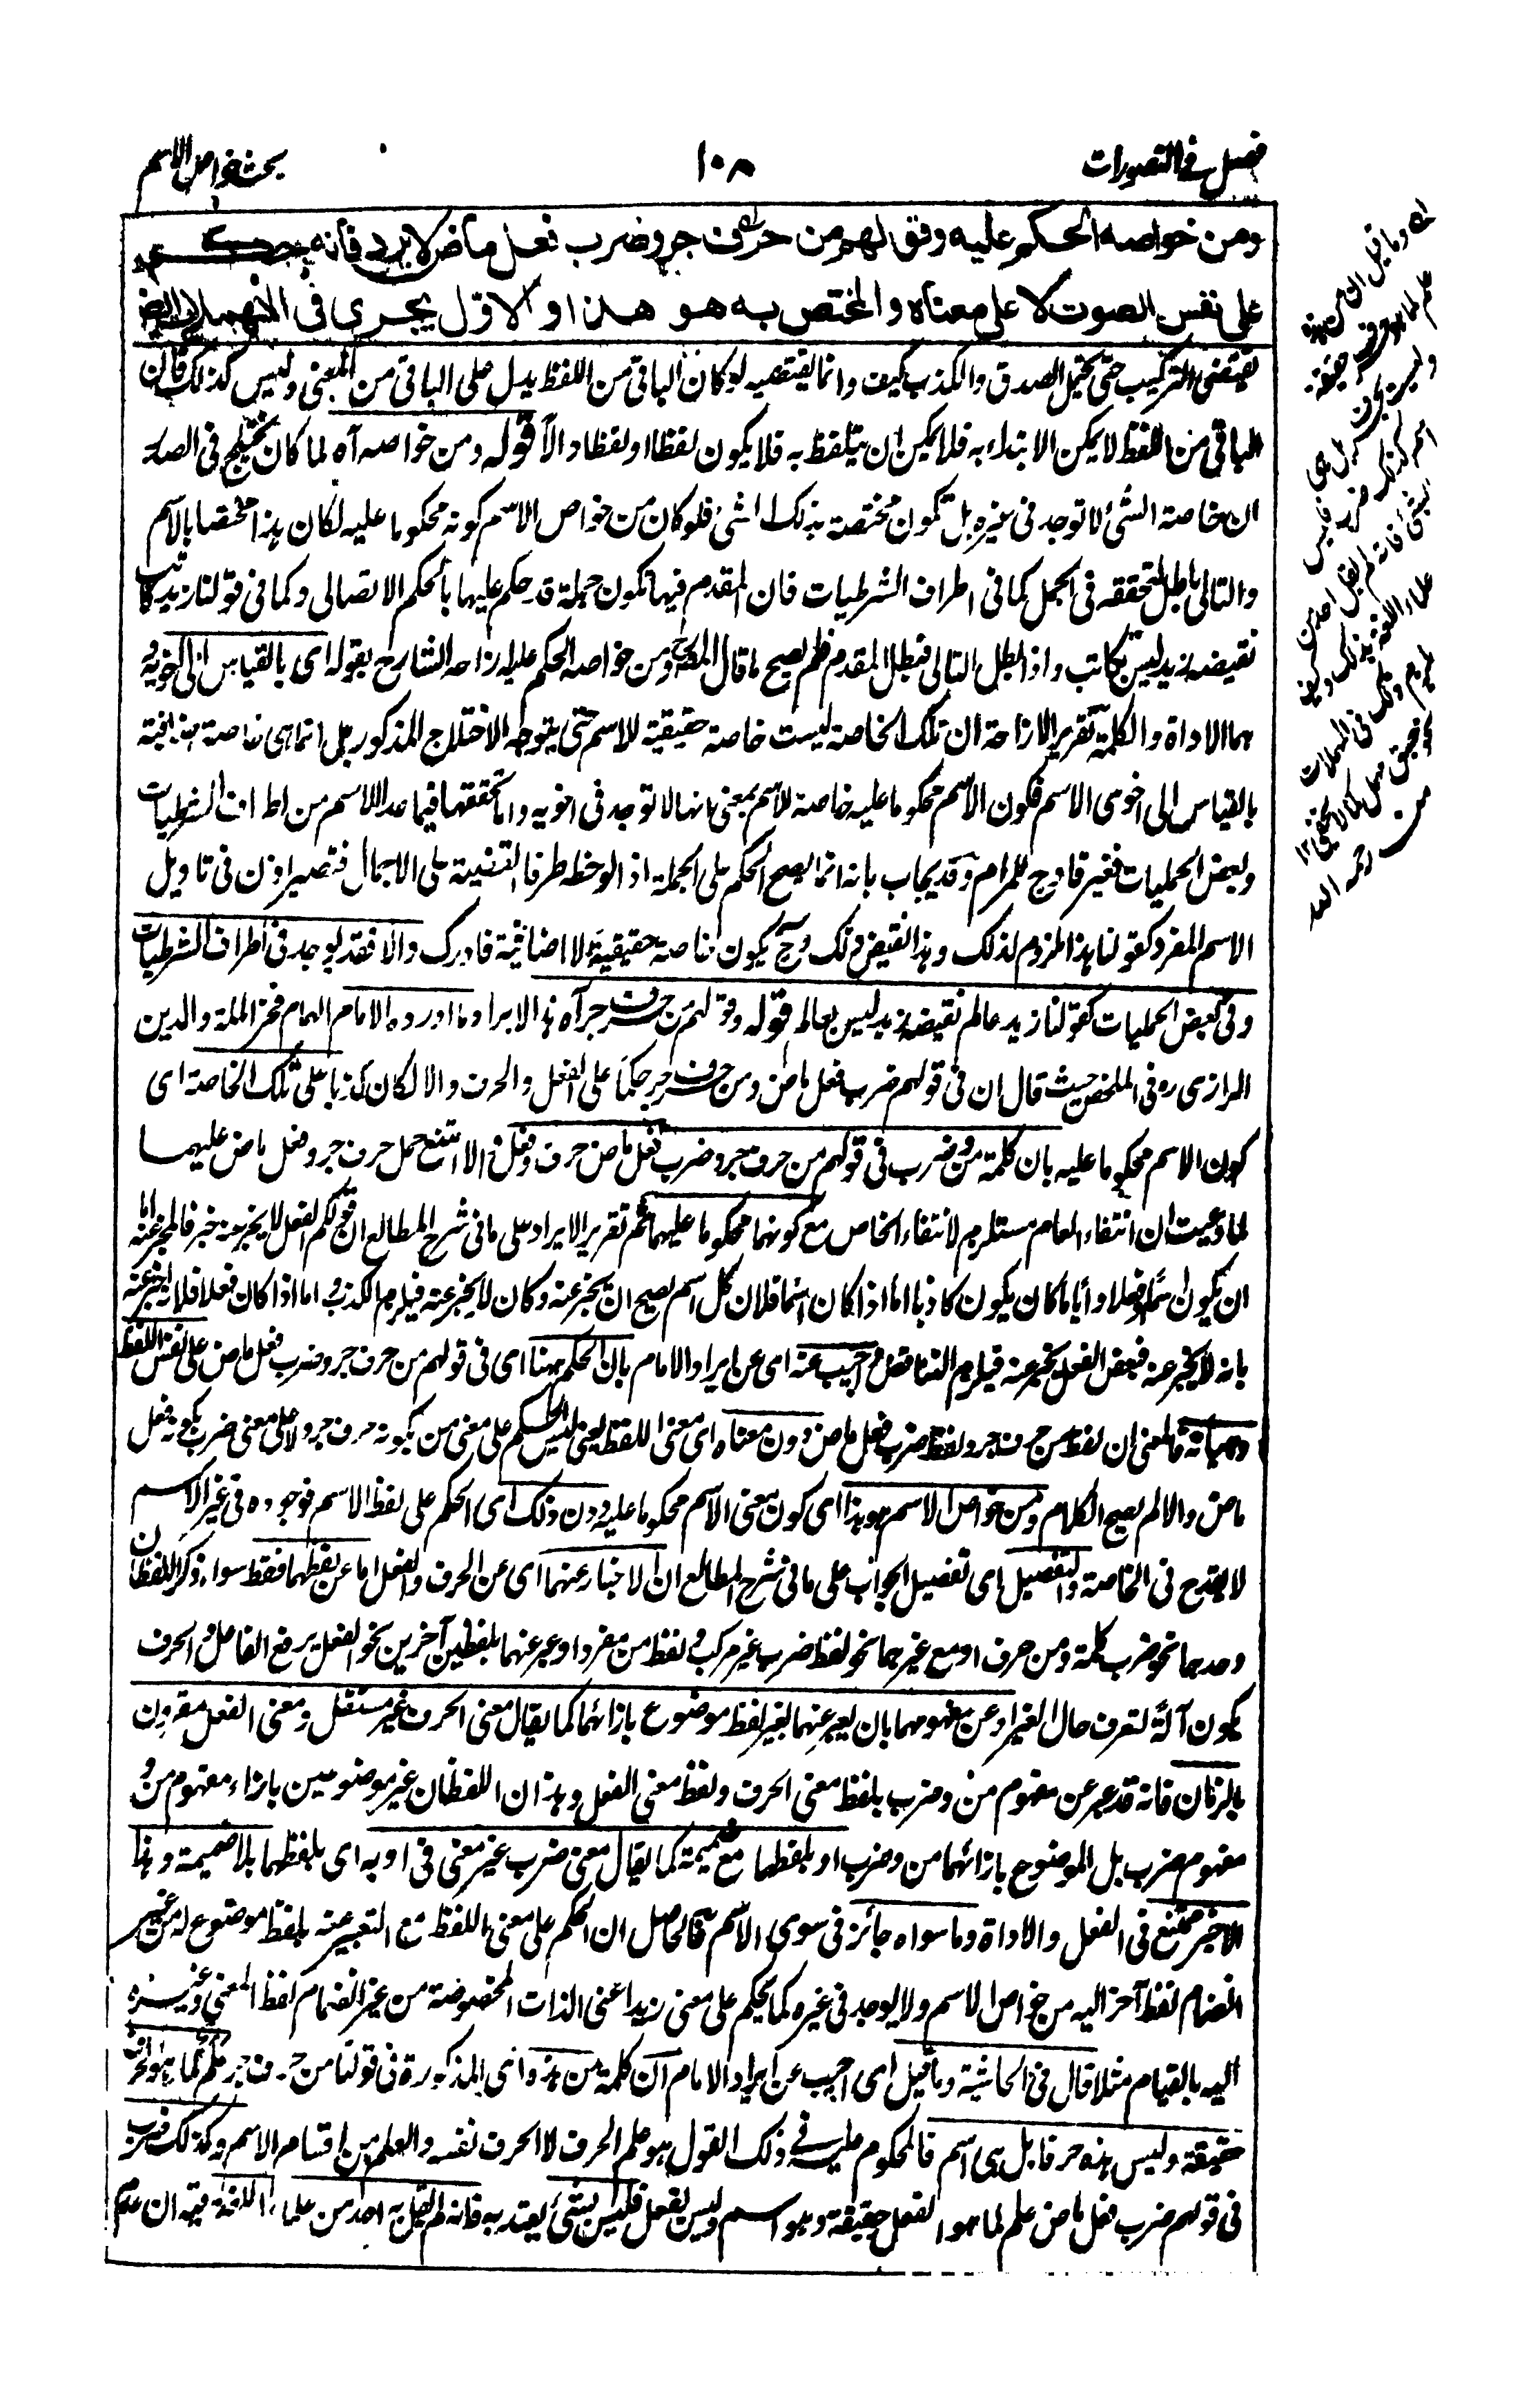 فصل فی التصورات
١٠٨
بحث خواص الاسم
ومن خواصه الحكم عليه وقولهم من حرف جر وضرب فعل ماض لا يرد فانه حكم
على نفس الصوت لا على معناه والمختص به هو هذا والاول يجري في المهملات ايضا
يقتضى التركيب حتى يحتمل الصدق والكذب كيف وانما يقتضيه لو كان الباقي من اللفظ يدل على الباقي من المعنى وليس كذلك فان
الباقي من اللفظ لا يمكن الابتداء به فلا يمكن ان يتلفظ به فلا يكون لفظا اولفظا دالا قوله ومن خواصه آه لما كان يختلج في الصدر
ان خاصة الشئ لا توجد في غيره بل تكون مختصة بذلك الشئ فلو كان من خواص الاسم كونه محكوما عليه لكان هذا مختصا بالاسم
والتالي باطل لتحققه في الجمل كما في اطراف الشرطيات فان المقدم فيها تكون جملة قد حكم عليها بالحكم الاتصالي وكما في قولنا زيد كاتب
نقيضه زيد ليس بكاتب واذا بطل التالي فبطل المقدم فلم يصح ما قال المصنف ومن خواصه الحكم عليه ازاحه الشارح بقوله اى بالقياس الى اخويه و
هما الاداة والكلمة تقرير الازاحة ان تلك الخاصة ليست خاصة حقيقية للاسم حتى يتوجه الاختلاج المذكور بل انما هى خاصة اضافية
بالقياس الى اخوى الاسم فكون الاسم محكوما عليه خاصة للاسم بمعنى انها لا توجد في اخويه واما تحققها فيما عدا الاسم من اطراف الشرطيات
وبعض الحمليات فغير قادح للمرام وقد يجاب بانه انما يصح الحكم على الجملة اذا لوحظ طرفا القضية على الاجمال فتصير اذن في تاويل
الاسم المفرد كقولنا هذا ملزوم لذلك وهذا نقيض ذلك وح يكون خاصة حقيقية لا اضافية فادرك والا فقد يوجد في اطراف الشرطيات
وفي بعض الحمليات كقولنا زيد عالم نقيضه زيد ليس بعالم قوله وقولهم من حرف جر آه هذا الايراد ما اورده الامام الهمام فخر الملة والدين
الرازى ره في الملخص حيث قال ان في قولهم ضرب فعل ماض ومن حرف جر حكما على الفعل والحرف والا لكان كذبا على تلك الخاصة اى
كون الاسم محكوما عليه بان كلمة من وضرب في قولهم من حرف جر وضرب فعل ماض حرف وفعل والا امتنع حمل حرف جر وفعل ماض عليهما
لما وعيت ان انتفاء العام مستلزم لانتفاء الخاص مع كونهما محكوما عليهما ثم تقرير الايراد على ما في شرح المطالع ان قولكم الفعل لا يخبر عنه خبر فالمخبر عنه اما
ان يكون اسما او فعلا وايا ما كان يكون كاذبا اما اذا كان اسما فلان كل اسم يصح ان يخبر عنه وكان لا يخبر عنه فيلزم الكذب و اما اذا كان فعلا فلانه اخبر عنه
بانه لا يخبر عنه فبعض الفعل يخبر عنه فيلزم التناقض اجيب عنه اى عن ايراد الامام بان الحكم ههنا اى في قولهم من حرف جر وضرب فعل ماض على نفس اللفظ
وهيأته فالمعنى ان لفظ من حرف جر ولفظ ضرب فعل ماض دون معناه اى معنى اللفظ يعنى ليس الحكم على معنى من بكونه حرف جر ولا على معنى ضرب بكونه فعل
ماض والا لم يصح الكلام ومن خواص الاسم هو هذا اى كون معنى الاسم محكوما عليه دون ذلك اى الحكم على لفظ الاسم فوجوده في غير الاسم
لا يقدح في الخاصة والتفصيل اى تفصيل الجواب على ما في شرح المطالع ان الاخبار عنهما اى عن الحرف والفعل اما عن لفظهما فقط سواء ذكر اللفظان
وحدهما نحو ضرب كلمة ومن حرف او مع غيرهما نحو لفظ ضرب غير مركب ولفظ من مفرد او عبر عنهما بلفظين آخرين نحو الفعل يرفع الفاعل والحرف
يكون آلة لتعرف حال الغير او عن مفهومهما بان يعبر عنهما بغير لفظ موضوع بازائهما كما يقال معنى الحرف غير مستقل ومعنى الفعل مقرون
بالزمان فانه قد عبر عن مفهوم من وضرب بلفظ معنى الحرف ولفظ معنى الفعل وهذان اللفظان غير موضوعين بازاء مفهوم من و
مفهوم ضرب بل الموضوع بازائهما من وضرب او بلفظهما مع ضميمة كما يقال معنى ضرب غير معنى في او به اى بلفظهما بلا ضميمة وهذا
الاخير ممتنع في الفعل والاداة وما سواه جائز في سوى الاسم فالحاصل ان الحكم على معنى اللفظ مع التعبير عنه بلفظ موضوع له من غير
انضمام لفظ آخر اليه من خواص الاسم ولا يوجد في غيره كما يحكم على معنى زيد اعنى الذات المخصوصة من غير انضمام لفظ المعنى وغيره
اليه بالقيام مثلا قال في الحاشية وما قيل اى اجيب عن ايراد الامام ان كلمة من هذه اى المذكورة في قولنا من حرف جر علم لما هو الحرف
حقيقة وليس هذه حرفا بل هى اسم فالمحكوم عليه في ذلك القول هو علم الحرف لا الحرف نفسه والعلم من اقسام الاسم وكذلك ضرب
في قولهم ضرب فعل ماض علم لما هو الفعل حقيقة وهو اسم وليس بفعل فليس بشئ يعتد به فانه لم يقل به احد من علماء اللغة فيه ان علم